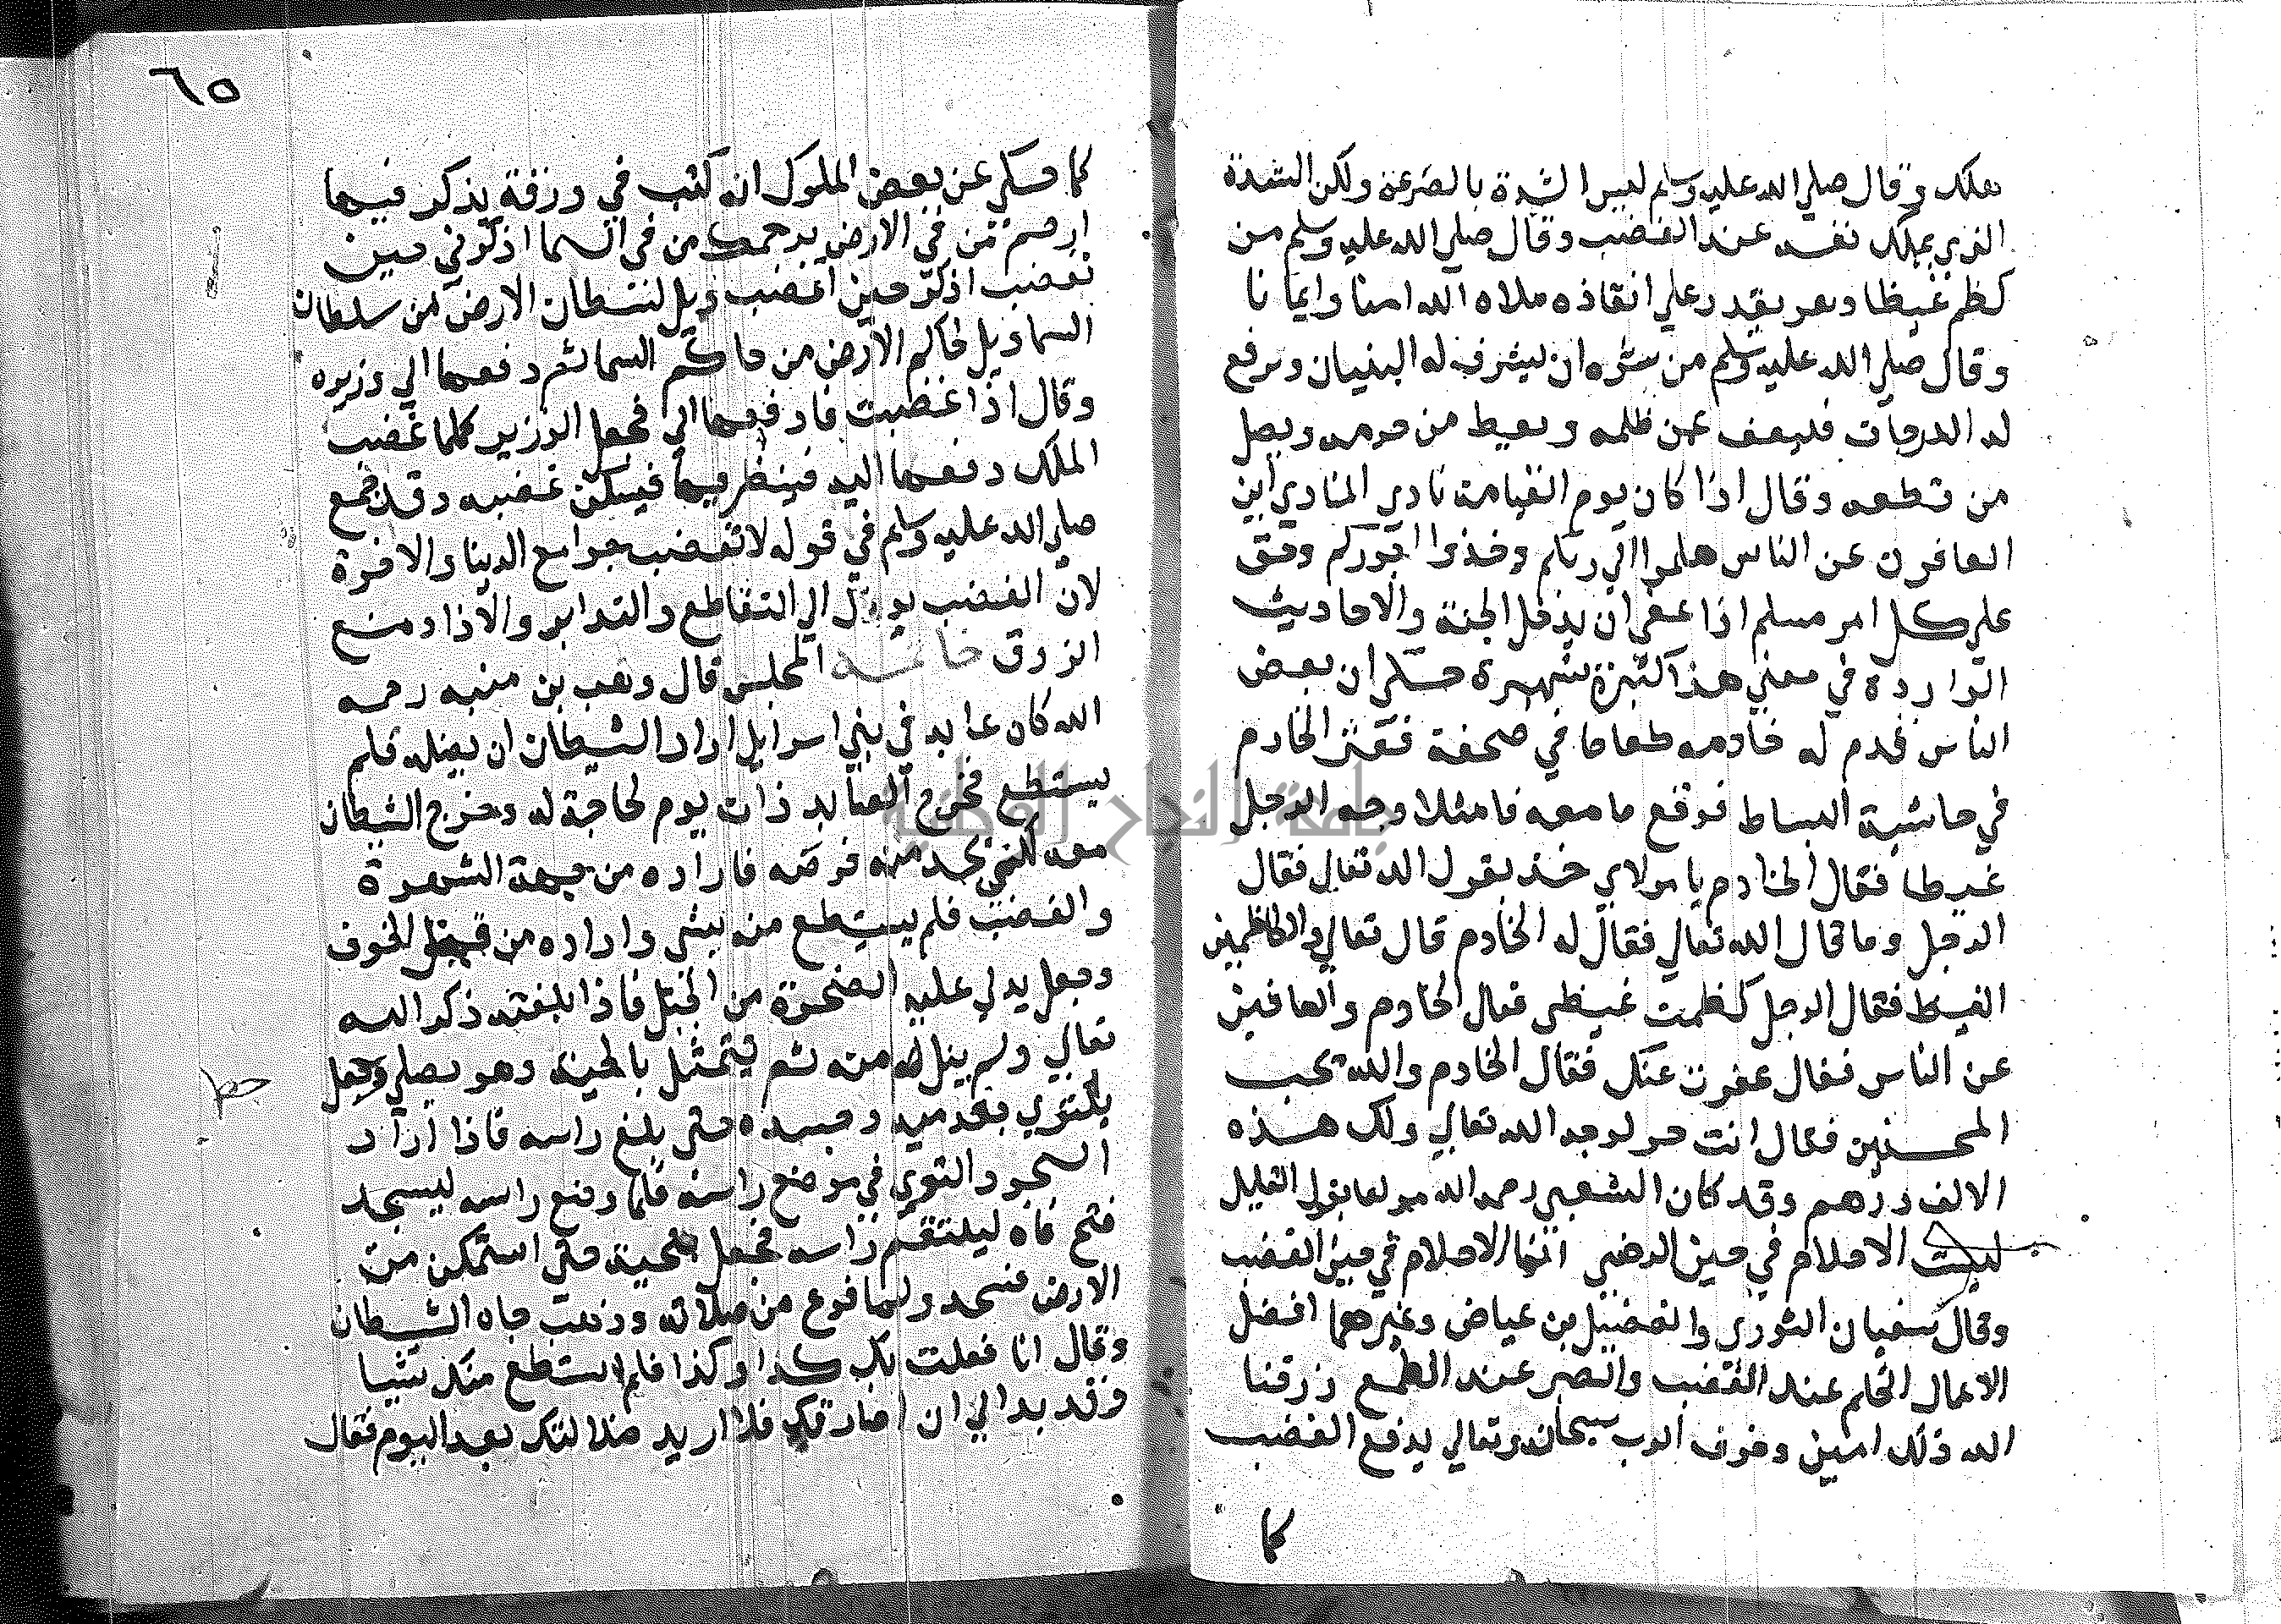 هلك وقال صلي الله عليه وسلم ليس الشدة بالصرعة ولكن الشدة
الذي يملك نفسه عند الغضب وقال صلي الله عليه وسلم من
كظم غيظا وهو يقدر علي انفاذه ملاه الله امنا وايمانا
وقال صلي الله عليه وسلم من سره ان يشرف له البنيان وترفع
له الدرجات فليعف عمن ظلمه ويعط من حرمه ويصل
من قطعه وقال اذا كان يوم القيامة نادي المنادي اين
العافون عن الناس هلموا الي ربكم وخذوا اجوركم وحق
علي كل امر مسلم اذا عفي ان يدخل الجنة والاحاديث
الواردة في معني هذا كثيرة شهيرة حكي ان بعض
الناس قدم له خادمه طعاما في صحفة فعثر الخادم
في حاشية البساط فوقع ما معه فامتلا وجه الرجل
غيظا فقال الخادم يا مولاي خذ بقول الله تعالي فقال
الرجل وما قال الله تعالي فقال له الخادم قال تعالي والكاظمين
الغيظ فقال الرجل كظمت غيظي فقال الخادم والعافين
عن الناس فقال عفوت عنك فقال الخادم والله يحب
المحسنين فقال انت حر لوجه الله تعالي ولك هذه
الالف درهم وقد كان الشعبي رحمه الله مولعا بقول القايل
ليست الاحلام في حين الرضي انما الاحلام في حين الغضب
وقال سفيان الثوري والفضيل بن عياض وغيرهما افضل
الاعمال الحلم عند الغضب والصبر عند الطمع رزقنا
الله ذلك امين وخوف الرب سبحانه وتعالي يدفع الغضب
كما
٦٥
كما حكي عن بعض الملوك انه كتب في ورقة يذكر فيها
ارحم من في الارض يرحمك من في السما اذكرني حين
تغضب اذكرك حين اغضب ويل لسلطان الارض من سلطان
السما ويل لحاكم الارض من حاكم السما ثم دفعها الي وزيره
وقال اذا غضبت فادفعها الي فجعل الوزير كلما غضب
الملك دفعها اليه فينظر فيها فيسكن غضبه وقد جمع
صلي الله عليه وسلم في قوله لا تغضب جوامع الدنيا والاخرة
لان الغضب يوول الي التقاطع والتدابر والاذا ومنع
الرزق خاتمة المجلس قال وهب بن منبه رحمه
الله كان عابد في بني اسرايل اراد الشيطان ان يضله فلم
يستطع فخرج العابد ذات يوم لحاجة له وخرج الشيطان
معه لكي يجد منه فرصه فاراده من جهة الشهوة
والغضب فلم يستطع منه بشي واراده من قبل الخوف
وجعل يدلي عليه الصخرة من الجبل فاذا بلغته ذكر الله
تعالي ولم ينل منه ثم يتمثل بالحية وهو يصلي وجعل
يلتوي بقدميه وجسده حتي بلغ راسه فاذا اراد
السجود التوي في موضع راسه فلما وضع راسه ليسجد
فتح فاه ليلتقم راسه فجعل ينحيه حتي استمكن من
الارض فسجد ولما فرغ من صلاته وذهب جاه الشيطان
وقال انا فعلت بك كذا وكذا فلم استطع منك شيا
وقد بدا لي ان اصادقك فلا اريد ضلالتك بعد اليوم فقال
جامعة النجاح الوطنية